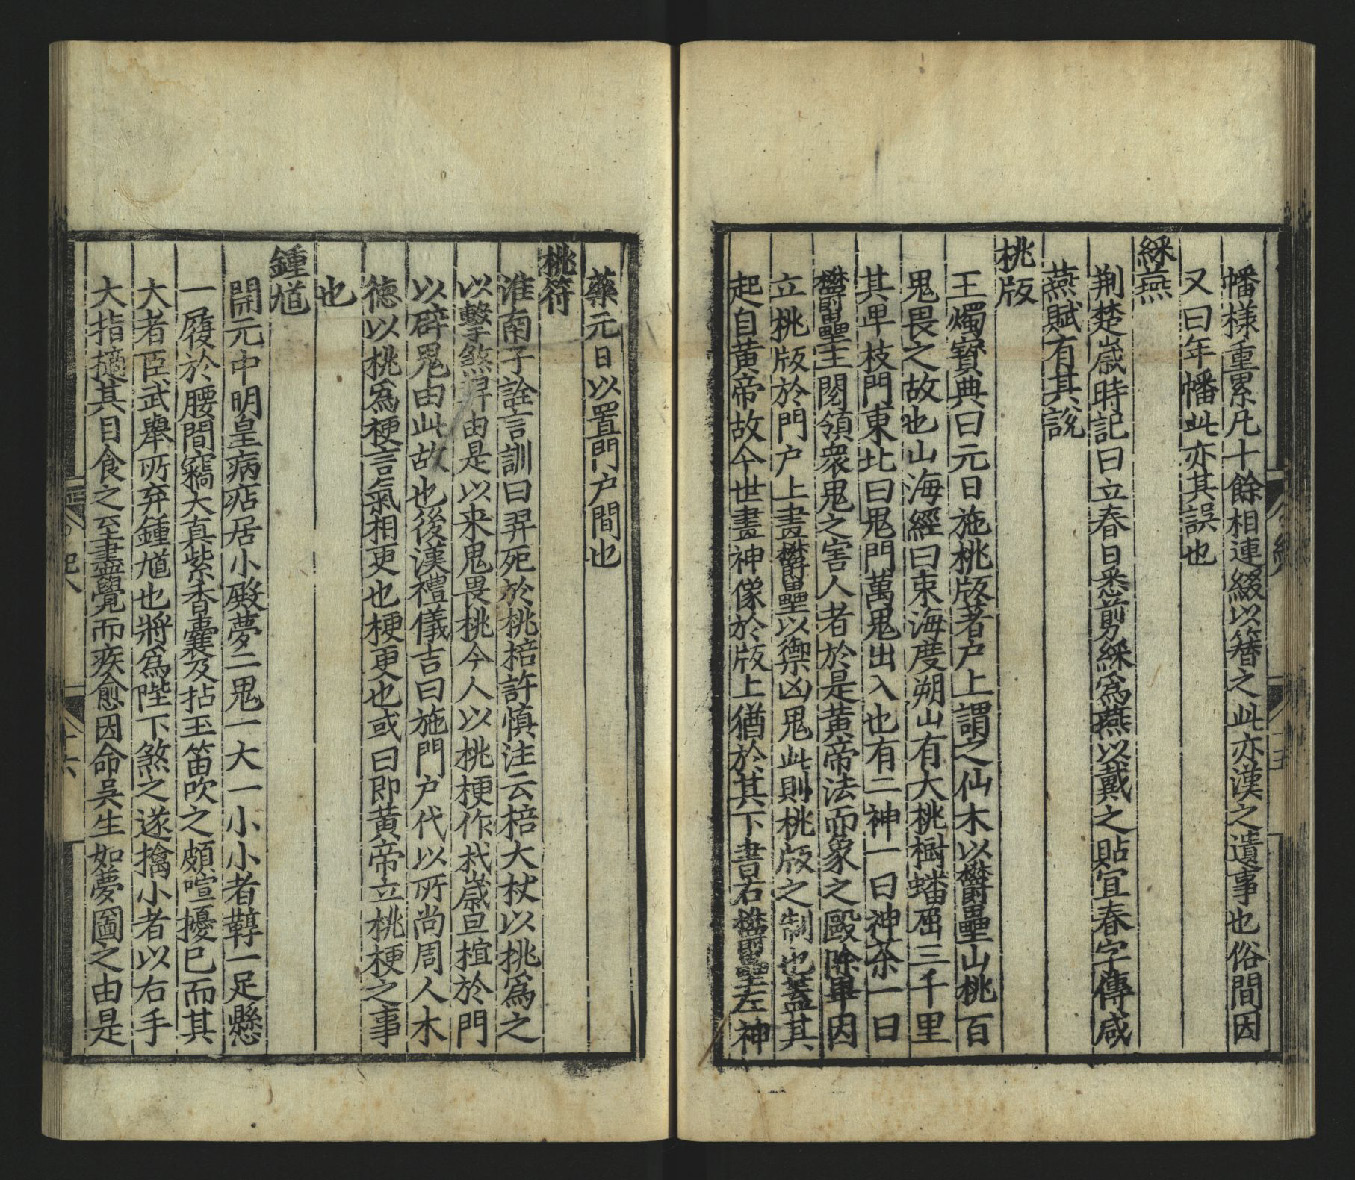 幡様重累凡十餘相連綴以簮之此亦漢之遺事也俗間因
又曰年幡此亦其誤也
綵燕
荆楚歲時記曰立春日悉剪綵爲燕以戴之貼宜春字傳咸
燕賦有其說
桃版
玉燭寳典曰元日施桃版著户上謂之仙木以欝壘山桃百
鬼畏之故也山海經曰東海度朔山有大桃樹蟠屈三千里
其卑枝門東北曰鬼門萬鬼出入也有二神一曰神荼一曰
欝壘主閱領衆鬼之害人者於是黄帝法而象之毆除畢因
立桃版於門户上畫欝壘以禦凶鬼此則桃版之制也蓋其
起自黄帝故今世畫神像於版上猶於其下書右欝壘左神
藥元日以置門户間也
桃符
淮南子詮言訓曰羿死於桃棓許慎注云棓大杖以桃爲之
以擊煞羿由是以来鬼畏桃今人以桃梗作杙歲旦植於門
以辟鬼由此故也後漢禮儀吉曰施門户代以所尚周人木
德以桃爲梗言氣相更也梗更也或曰即黄帝立桃梗之事
也
鍾馗
開元中明皇病痁居小殿夢二鬼一大一小小者鞟一足懸
一履於腰間竊大真紫香囊及拈玉笛吹之頗喧擾已而其
大者臣武舉所弃鍾馗也將爲陛下煞之遂擒小者以右手
大指擿其目食之至盡覺而疾愈因命吴生如夢圖之由是